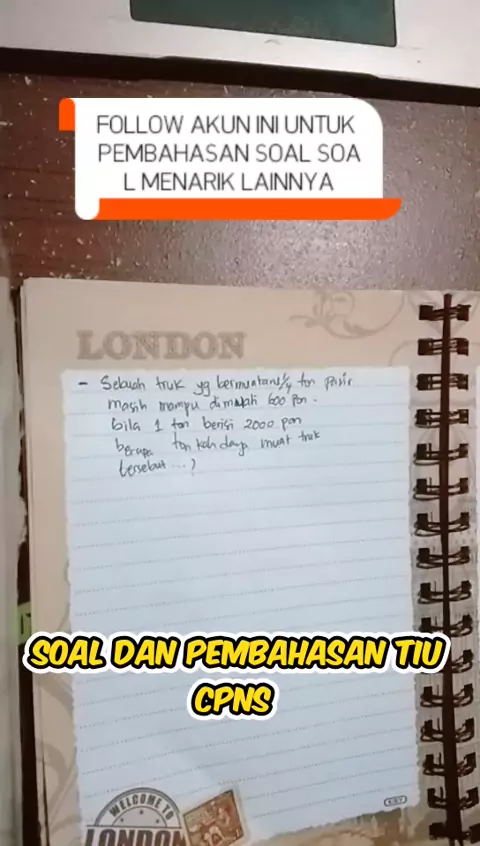 FOLLOW AKUN INI UNTUK
PEMBAHASAN SOAL SOA
L MENARIK LAINNYA
LONDON
- Sebuah truk yg bermuatan 1/4 ton pasir
masih mampu dimuati 600 pon.
bila 1 ton berisi 2000 pon
berapa ton kah daya muat truk
tersebut ... ?
SOAL DAN PEMBAHASAN TIU
CPNS
WELCOME TO
LONDON